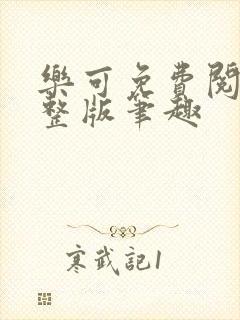 樂可免費閱
整版筆趣
寒武記1